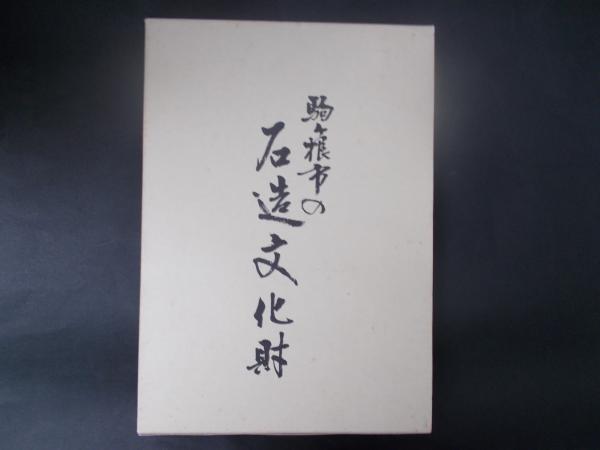 駒ヶ根市の
石造文化財